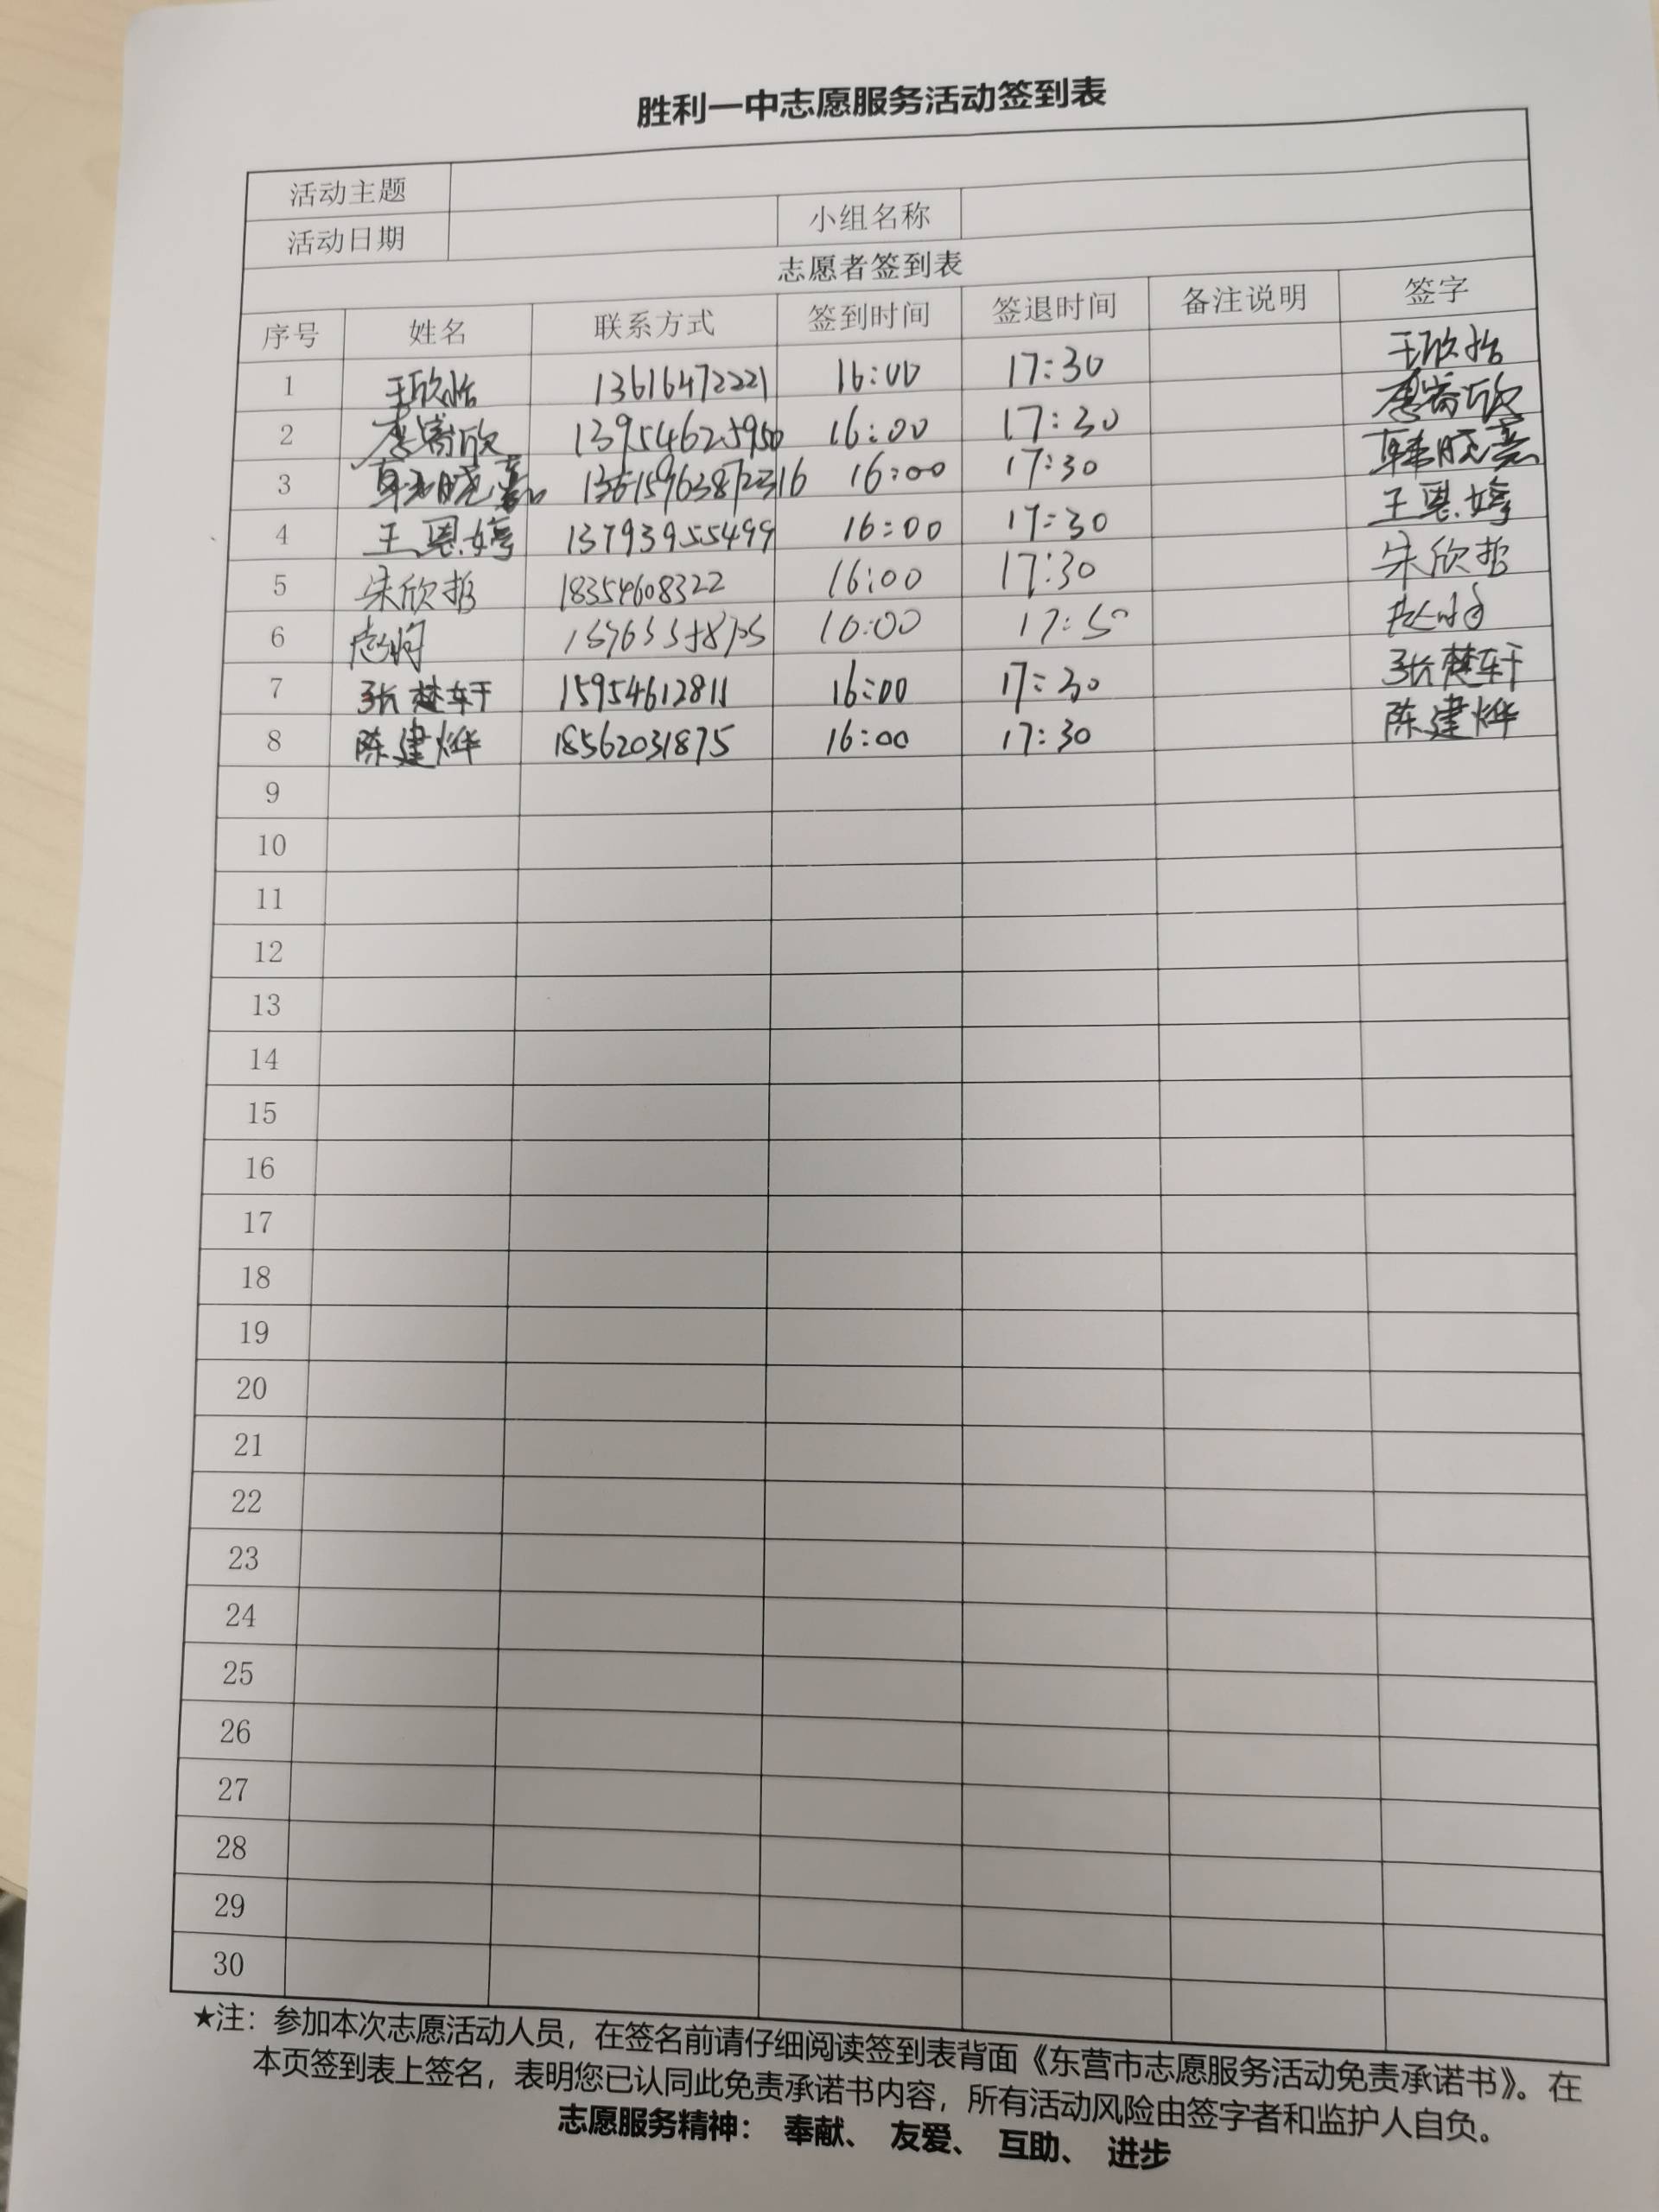 胜利一中志愿服务活动签到表
活动主题
活动日期 小组名称
志愿者签到表
序号 姓名 联系方式 签到时间 签退时间 备注说明 签字
1 王欣怡 13616472221 16:00 17:30 王欣怡
2 李甯欣 13954625950 16:00 17:30 李甯欣
3 韩晓嘉 16:00 17:30 韩晓嘉
4 王恩婷 13793955499 16:00 17:30 王恩婷
5 朱欣哲 18354608322 16:00 17:30 朱欣哲
6 16:00 17:30
7 张楚轩 15954612811 16:00 17:30 张楚轩
8 陈建烨 18562031875 16:00 17:30 陈建烨
9
10
11
12
13
14
15
16
17
18
19
20
21
22
23
24
25
26
27
28
29
30
★注：参加本次志愿活动人员，在签名前请仔细阅读签到表背面《东营市志愿服务活动免责承诺书》。在
本页签到表上签名，表明您已认同此免责承诺书内容，所有活动风险由签字者和监护人自负。
志愿服务精神： 奉献、 友爱、 互助、 进步